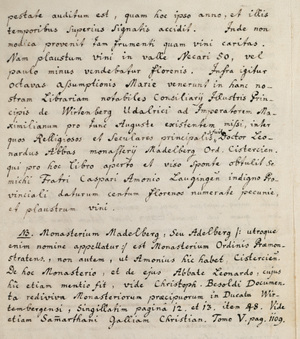 pestate auditum est, quam hoc ipso anno, et illis
temporibus superius signatis accidit. Inde non
modica provenit tam frumenti quam vini caritas.
Nam plaustum vini in valle Necari 50, vel
paulo minus vendebatur florenis. Infra igitur
octavas assumptionis Marie venerunt in hanc no-
stram Librariam notabiles Consiliarij Illustris Prin-
cipis de Wirtenberg Udalrici ad Imperatorem Ma-
ximilianum pro tunc Auguste existentem missi, inter
quos Religiosos et Seculares principalis Doctor Leo-
nardus Abbas monasterij Madelberg Ord. Cistercien.
qui pro hoc libro aperto et viso sponte obtulit se
michi Fratri Caspari Amonio Laugingen indigno Pro-
vinciali daturum centum florenos numerate pecunie,
et plaustrum vini.
NB. Monasterium Madelberg, seu Adelberg /: utroque
enim nomine appellatur :/ est Monasterium Ordinis Præmon-
stratens, non autem, ut Amonius hic habet, Cistercien.
De hoc Monasterio, et de ejus Abbate Leonardo, cujus
hic etiam mentio fit, vide Christoph. Besoldi Documen-
ta rediviva Monasteriorum præcipuorum in Ducatu Wir-
tembergensi, Singillatim pagina 12, et 13. iten 48. Vide
etiam Samarthani Galliam Christian. Tomo V. pag. 1109.